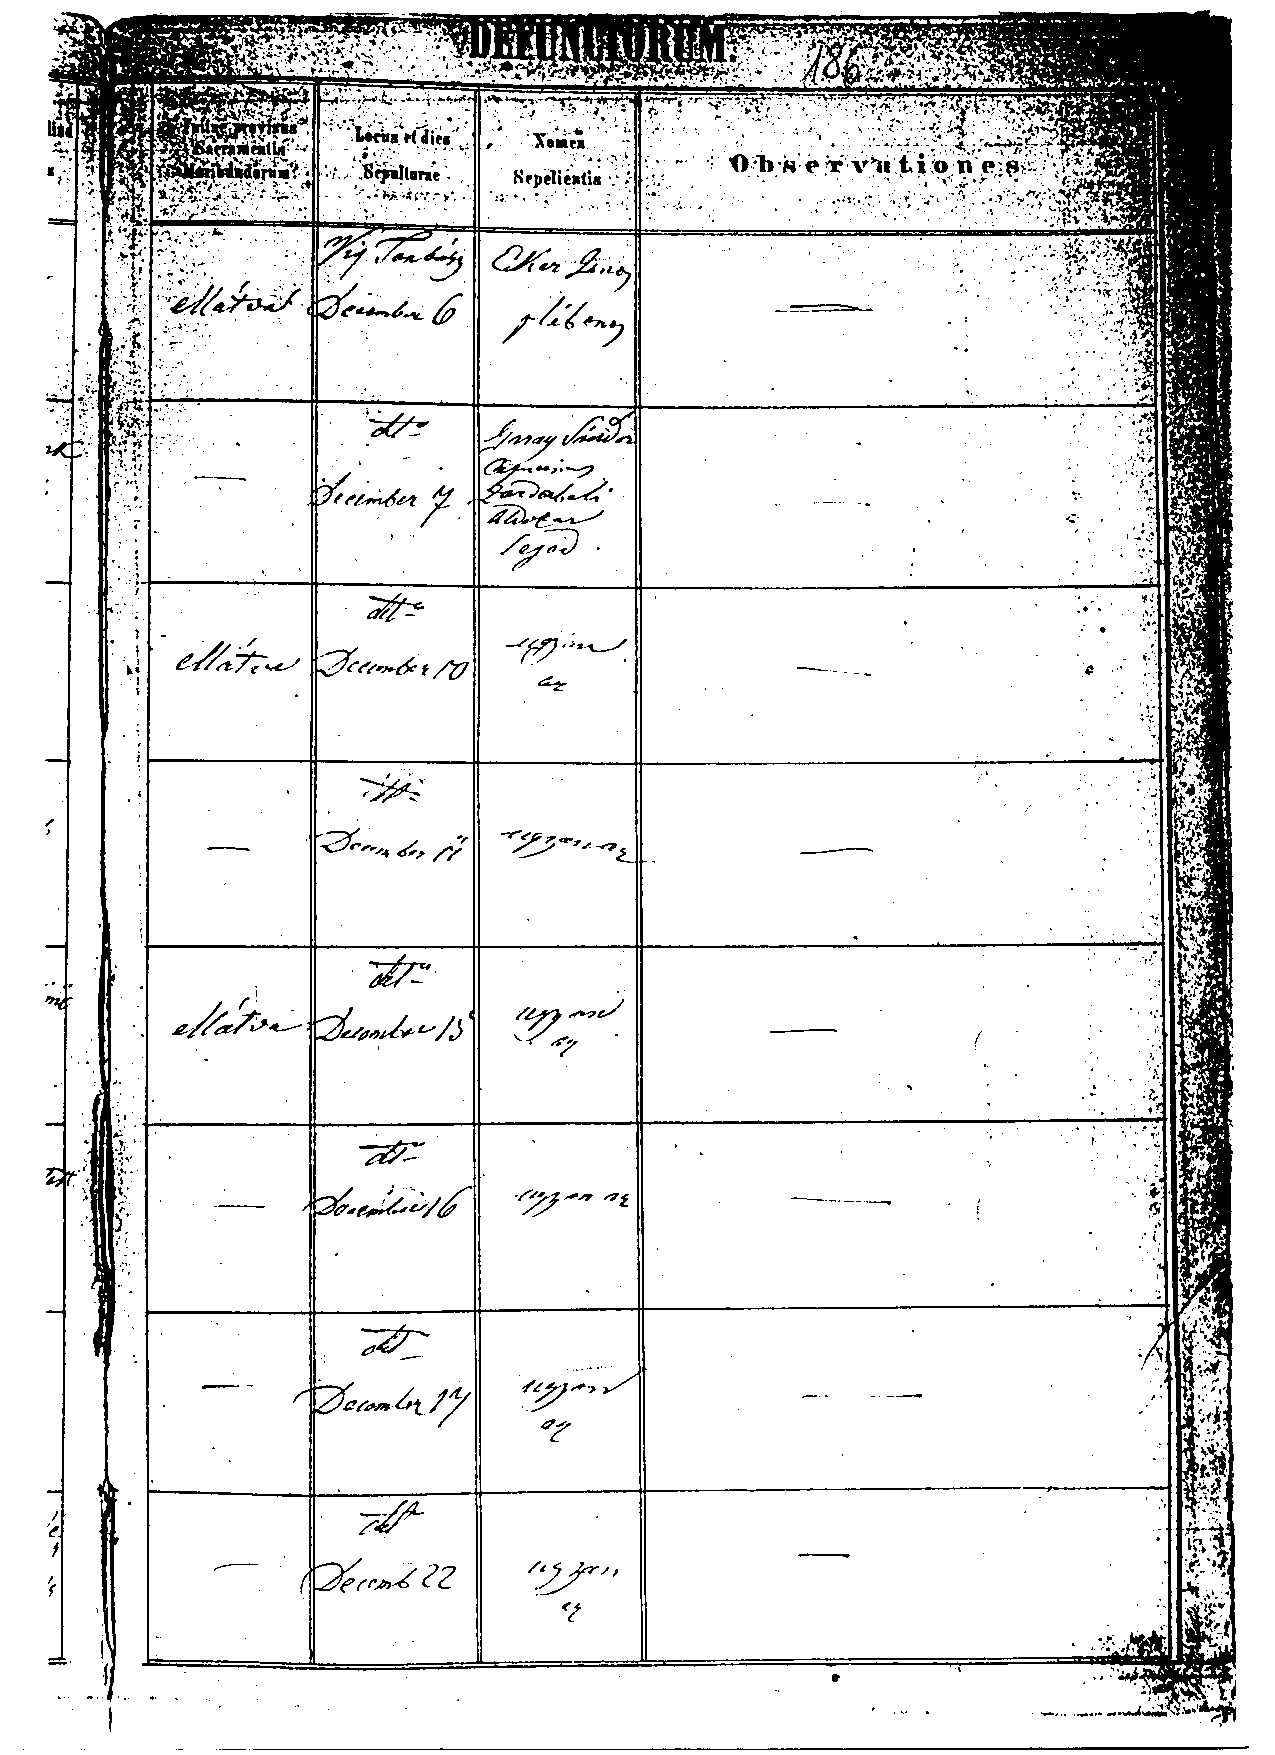 DEFUNCTORUM.
186
An fuit provisus
Sacramentis
Moribundorum?
Locus et dies
Sepulturae
Nomen
Sepelientis
Observationes
ellátva
December 6
plébános
dto
December 7
Garay Sándor
segéd
ellátva
dto
December 10
ugyan
az
December 11
ugyan az
ellátva
dto
December 15
ugyan
az
dto
December 16
ugyan az
dto
December 17
ugyan
az
dto
Decemb 22
ugyan
az